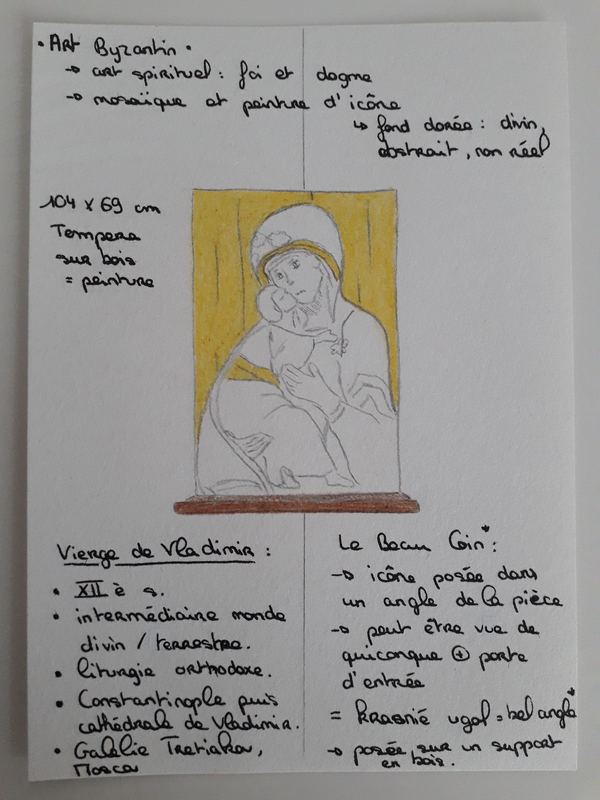 • Art Byzantin •
→ art spirituel : foi et dogme
→ mosaïque et peinture d'icône
↳ fond dorée : divin,
abstrait, non réel
104 x 69 cm
Tempera
sur bois
= peinture
Vierge de Vladimir :
• XII è s.
• intermédiaire monde
divin / terrestre.
• liturgie orthodoxe.
• Constantinople puis
cathédrale de Vladimir.
• Galélie Tretiakov,
Moscou
Le Beau Coin* :
→ icône posée dans
un angle de la pièce
→ peut être vue de
quiconque ⊕ porte
d'entrée
= Krasnié ugol = bel angle*
→ posée sur un support
en bois.